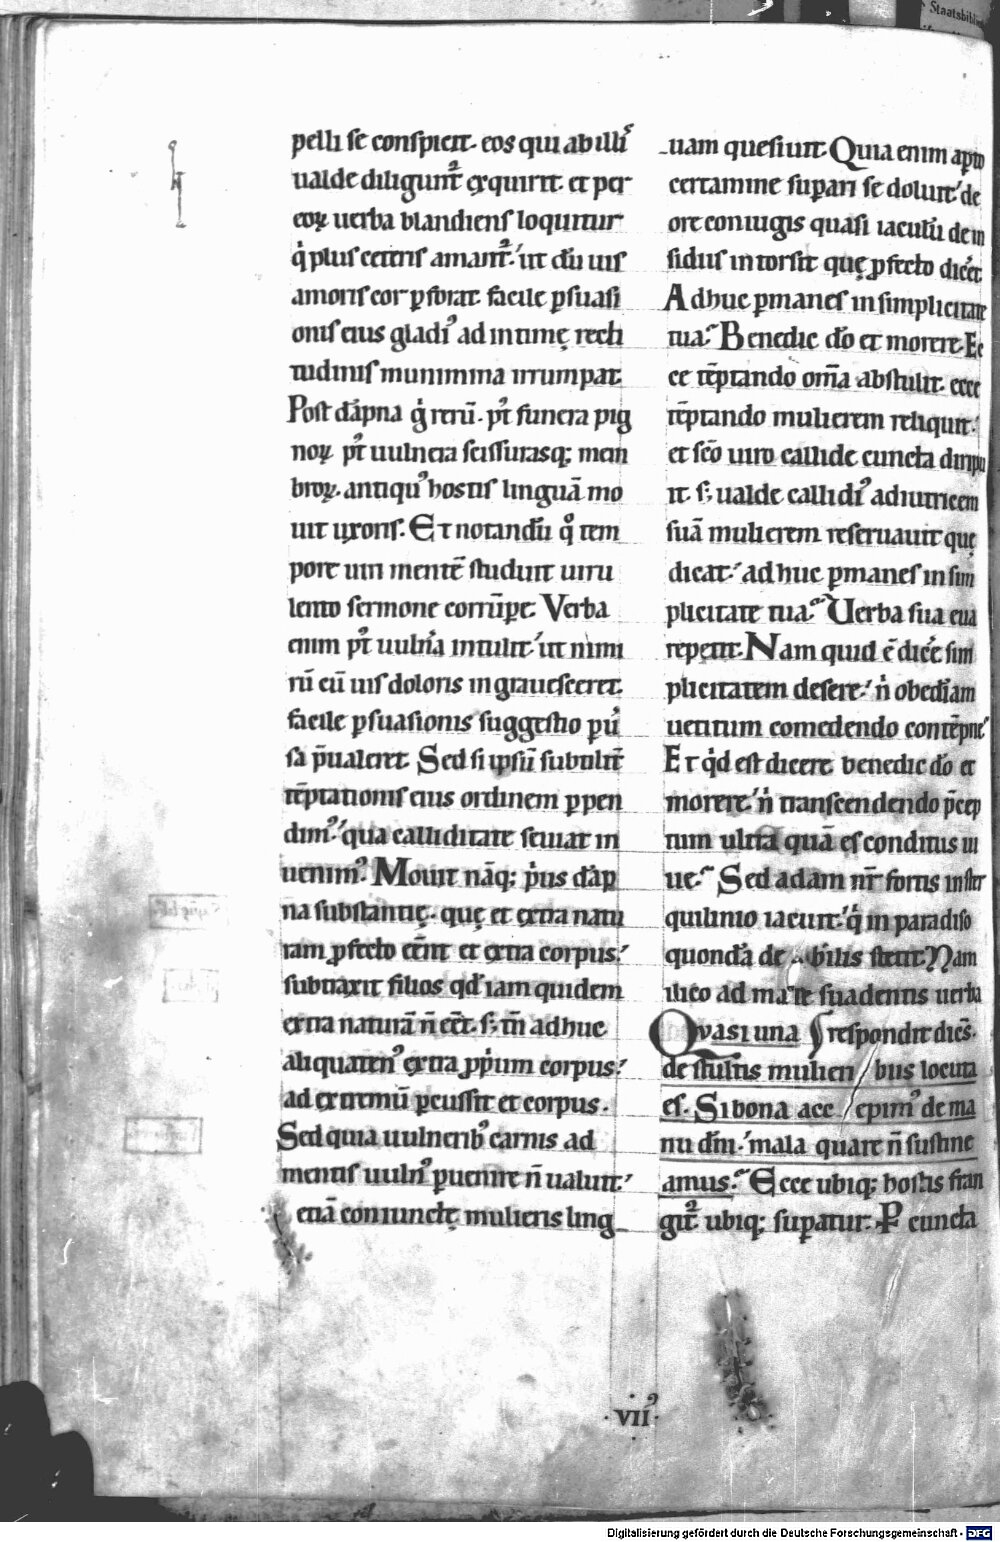 pelli se conspicit. eos qui ab illi᷒
ualde diligunt᷑ exquirit. et per
eoꝝ uerba blandiens loquitur
q̇ plus ceteris amant᷑.' ut dū uis
amoris cor ꝑforat. facile ꝑsuasi
onis eius gladi᷒ ad intimę recti
tudinis munimina irrumpat.
Post dāpna g̊ rerū. p᷒t funera pig
noꝝ p᷒t uulnera scissurasq; mem
broꝝ. antiqu᷒ hostis linguā mo
uit uxoris. Et notandū qͦ tem
pore uiri mentē studuit uiru
lento sermone corrūpe. Verba
enim p᷒t uuln̄a intulit.' ut nimi
rū cū uis doloris ingrauesceret.
facile ꝑsuasionis suggestio ꝑu᷒
sa p̄ualeret. Sed si ipsū subtilit᷑
tēptationis eius ordinem ꝑpen
dim᷒.' qua calliditate seuiat in
uenim᷒. Mouit nāq; p̓us dāp
na substantię. quę et extra natu
ram ꝓfecto erāt et extra corpus.'
subtraxit filios qd̄ iam quidem
extra naturā n̄ eēt. s; tn̄ adhuc
aliquaten᷒ extra ꝓp̓um corpus.'
ad extremū ꝑcussit et corpus.
Sed quia uulnerib᷒ carnis ad
mentis uuln᷒ ꝑuenire n̄ ualuit.'
etiā coniunctę mulieris ling
uam quesiuit. Quia enim apto
certamine suꝑari se doluit.' de
ore coniugis quasi iaculū de in
sidiis intorsit quę ꝓfecto dic̓et
Adhuc ꝑmanes in simplicitate
tua? Benedic dō et morere. Ec
ce tēptando om̄a abstulit. ecce
tēptando mulierem reliquit.'
et sc̄o uiro callide cuncta diripu
it. s; ualde callidi᷒ adiutricem
suā mulierem reseruauit quę
dicat.' adhuc ꝑmanes in sim
plicitate tua? Uerba sua eua
repetit. Nam quid ē dic̓e sim
plicitatem desere.' n̓ obediam
uetitum comedendo contēpne?
Et q̓d est dicere benedic dō et
morere.' n̓ transcendendo p̄cep
tum ultra quā es conditus ui
ue? Sed adam nr̄ fortis in ster
quilinio iacuit.' q̓ in paradiso
quondā debilis stetit. Nam
ilico ad male suadentis uerba
Quasi una respondit dic̄s.
de stultis mulieribus locuta
es. Si bona accepim᷒ de ma
nu dn̄i.' mala quare n̄ sustine
amus? Ecce ubiq; hostis fran
git᷑ ubiq; suꝑatur. P cuncta
·VII᷒·
Digitalisierung gefördert durch die Deutsche Forschungsgemeinschaft - DFG